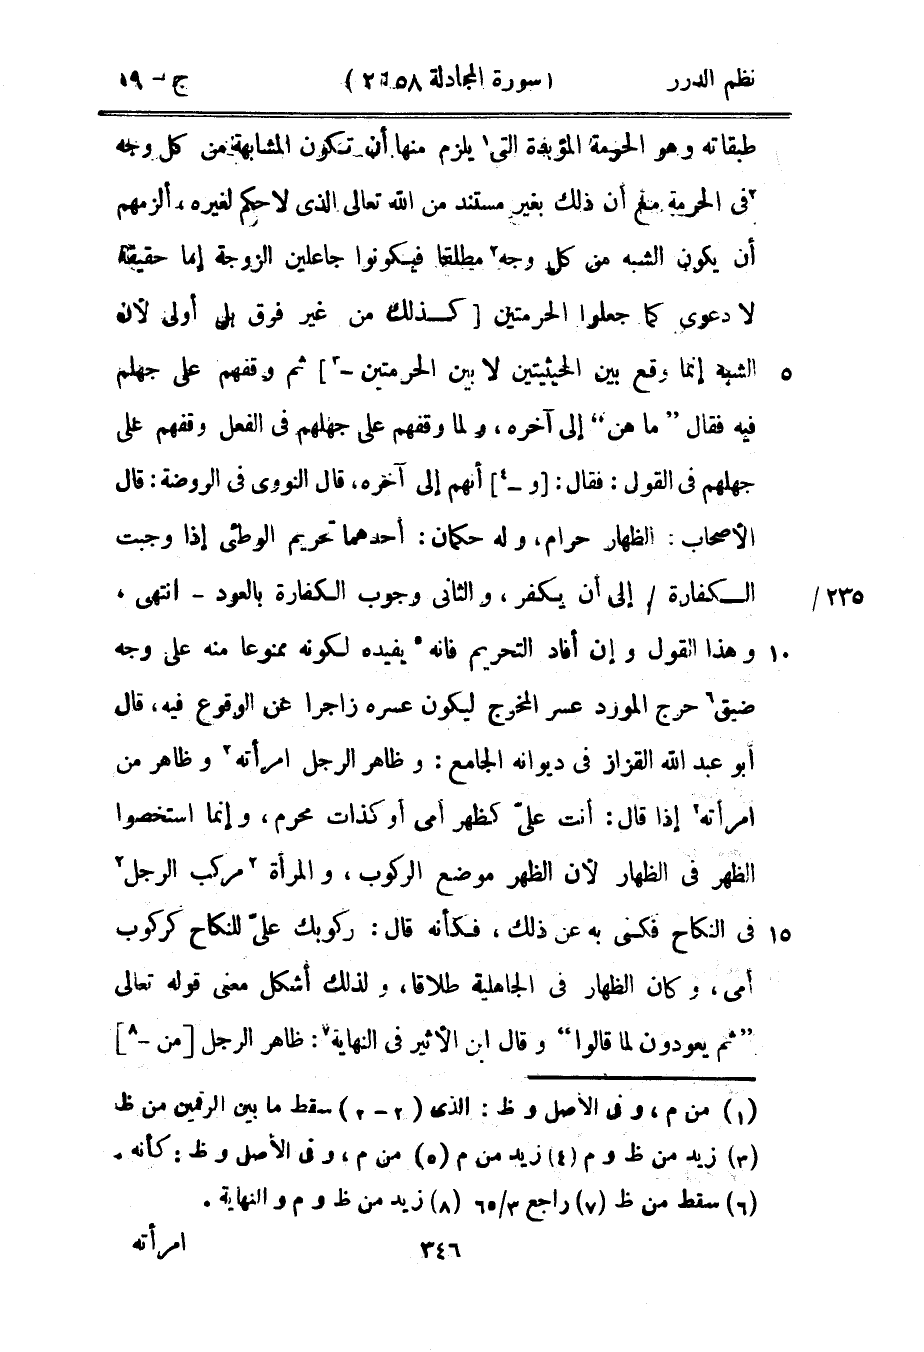 نظم الدرر (سورة المجادلة ٥٨ : ٢) ج - ١٩
طبقاته و هو الحرمة المؤبدة التى١ يلزم منها أن تكون المشابهة من كل وجه
٢فى الحرمة مع أن ذلك بغير مستند من الله تعالى الذى لا حكم لغيره، ألزمهم
أن يكون الشبه من كل وجه٢ مطلقا فيكونوا جاعلين الزوجة إما حقيقة
لا دعوى كما جعلوا الحرمتين [ كذلك من غير فرق بل أولى لأن
٥ الشبه إنما وقع بين الحيثيتين لا بين الحرمتين -٣] ثم وقفهم على جهلهم
فيه فقال ”ما هن“ إلى آخره، و لما وقفهم على جهلهم فى الفعل وقفهم على
جهلهم فى القول : فقال : [و -٤] أنهم إلى آخره، قال النووى فى الروضة : قال
الأصحاب : الظهار حرام، و له حكمان : أحدهما تحريم الوطئى إذا وجبت
الكفارة / إلى أن يكفر، و الثانى وجوب الكفارة بالعود - انتهى، ٢٣٥ /
١٠ و هذا القول و إن أفاد التحريم فانه٥ يفيده لكونه ممنوعا منه على وجه
ضيق٦ حرج المورد عسر المخرج ليكون عسره زاجرا عن الوقوع فيه، قال
أبو عبد الله القزاز فى ديوانه الجامع : و ظاهر الرجل امرأته٢ و ظاهر من
امرأته٢ إذا قال : أنت علىّ كظهر أمى أو كذات محرم، و إنما استخصوا
الظهر فى الظهار لأن الظهر موضع الركوب، و المرأة ٢مركب الرجل٢
١٥ فى النكاح فكنى به عن ذلك، فكأنه قال : ركوبك علىّ للنكاح كركوب
أمى، و كان الظهار فى الجاهلية طلاقا، و لذلك أشكل معنى قوله تعالى
”ثم يعودون لما قالوا“ و قال ابن الأثير فى النهاية٧ : ظاهر الرجل [من -٨]
(١) من م، و فى الأصل و ظ : الذى (٢ - ٢) سقط ما بين الرقمين من ظ
(٣) زيد من ظ و م (٤) زيد من م (٥) من م، و فى الأصل و ظ : كأنه .
(٦) سقط من ظ (٧) راجع ٣/ ٦٥ (٨) زيد من ظ و م و النهاية .
٣٤٦ امرأته